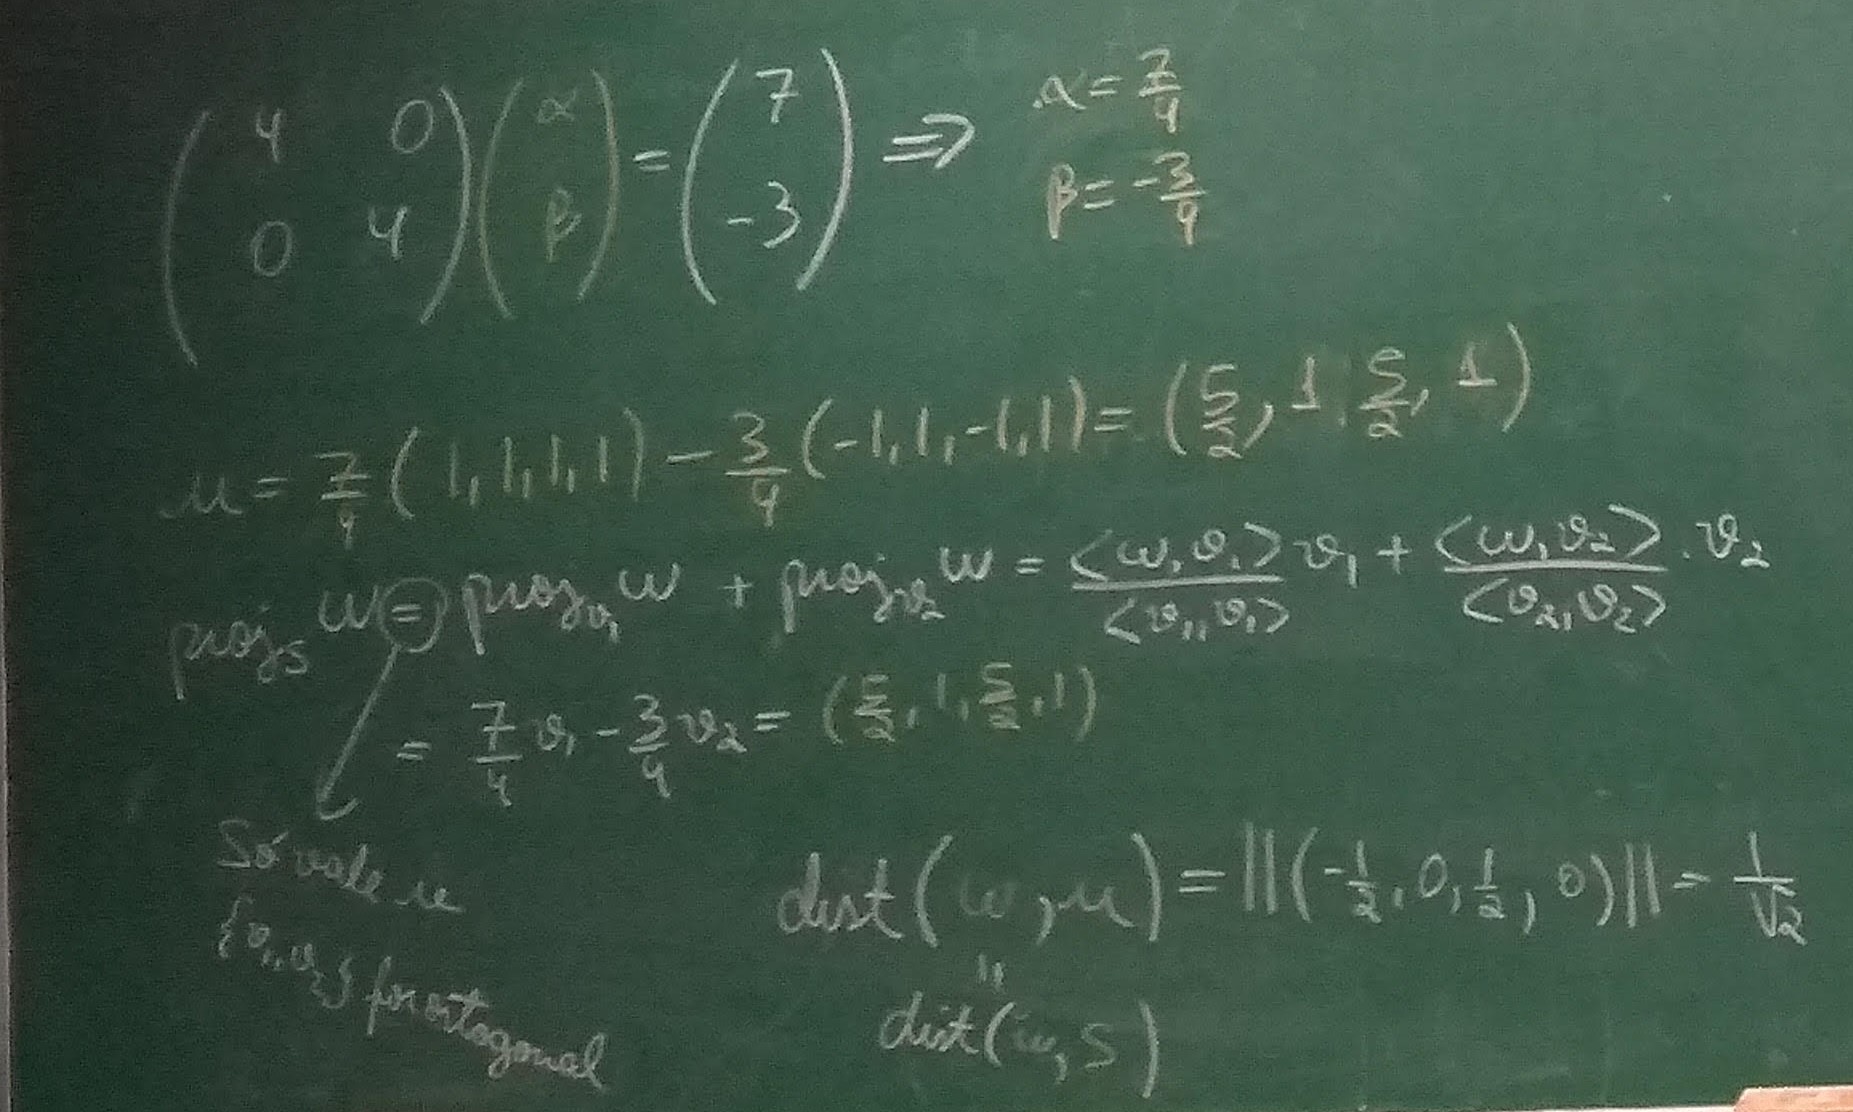 (4 0; 0 4)(α; β) = (7; -3) ⇒ α = 7/4 β = -3/4
u = 7/4 (1,1,1,1) - 3/4 (-1,1,-1,1) = (5/2, 1, 5/2, 1)
proj_S w = proj_v₁ w + proj_v₂ w = <w,v₁>/<v₁,v₁> v₁ + <w,v₂>/<v₂,v₂> . v₂
= 7/4 v₁ - 3/4 v₂ = (5/2, 1, 5/2, 1)
Só vale se
{v₁,v₂} for ortogonal
dist(w,u) = ||(-1/2, 0, 1/2, 0)|| = 1/√2
=
dist(w,S)